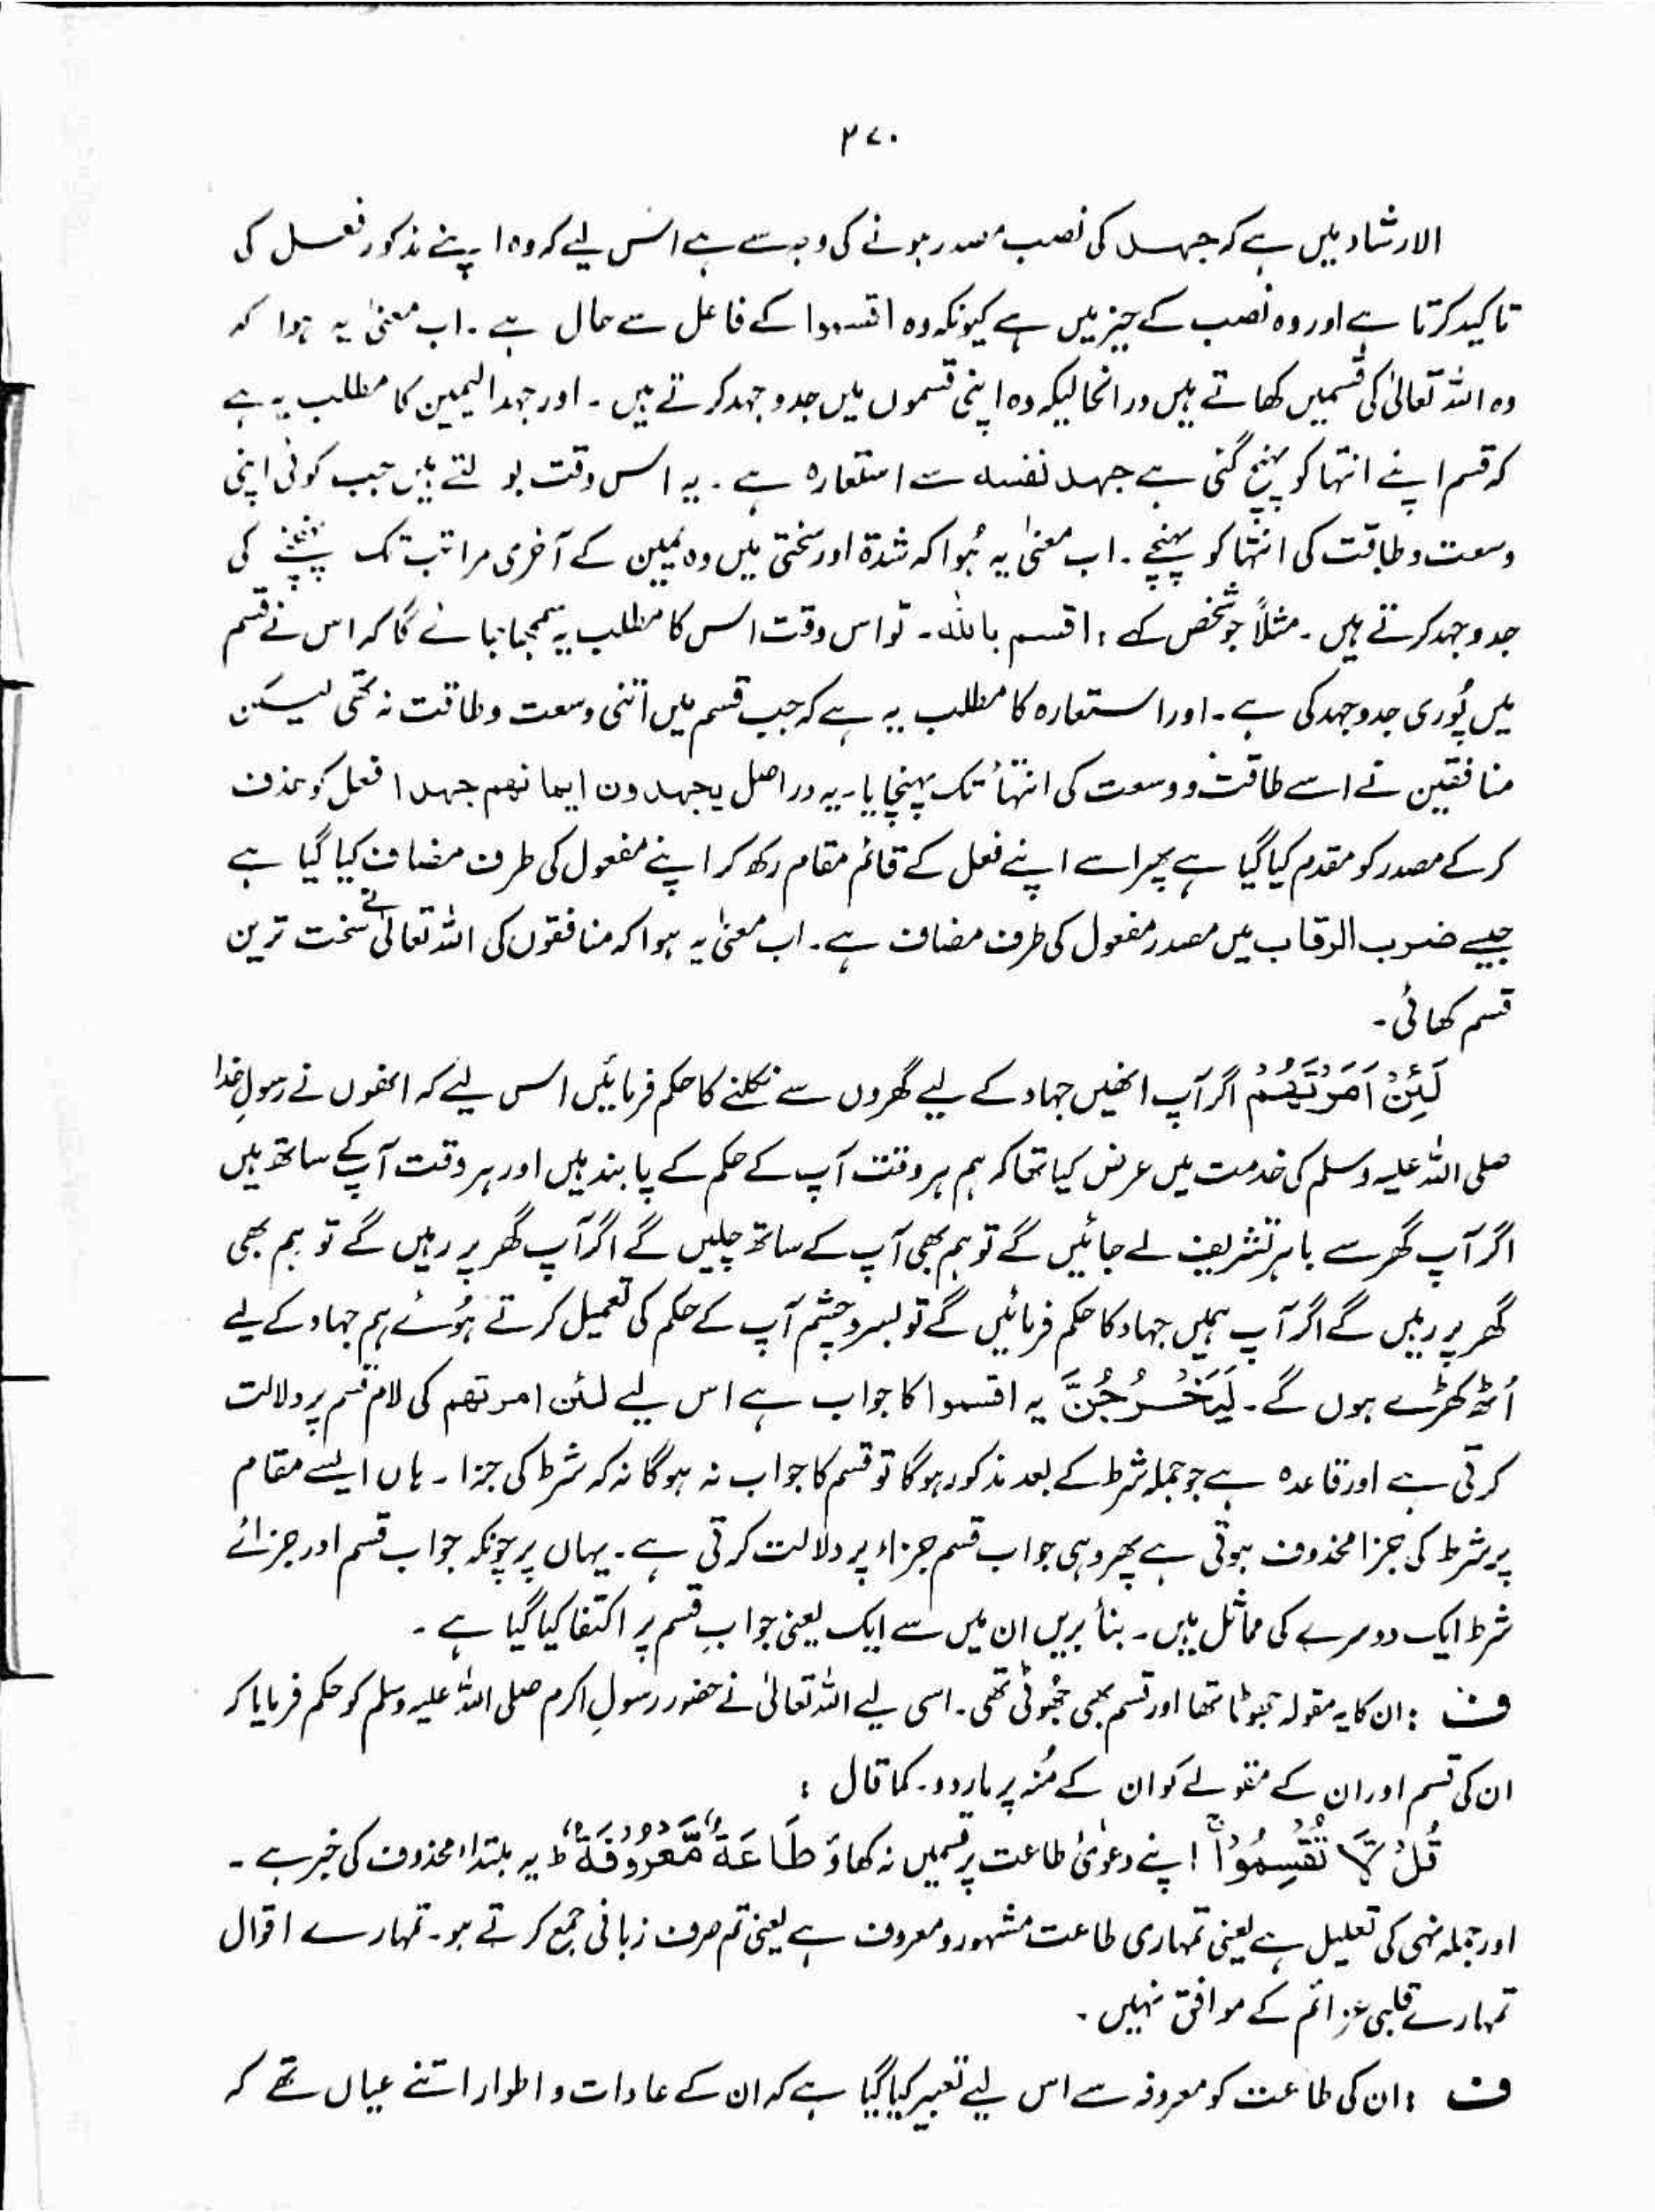 ۳۷۰
الارشاد میں ہے کہ جہد کی نصب مصدر ہونے کی وجہ سے ہے اس لیے کہ وہ اپنے مذکور فعل کی
تاکید کرتا ہے اور وہ نصب کے حیز میں ہے کیونکہ وہ اقسموا کے فاعل سے حال ہے ۔ اب معنیٰ یہ ہوا کہ
وہ اللہ تعالیٰ کی قسمیں کھاتے ہیں درانحالیکہ وہ اپنی قسموں میں جدوجہد کرتے ہیں ۔ اور جہد الیمین کا مطلب یہ ہے
کہ قسم اپنے انتہا کو پہنچ گئی ہے جہد نفسہ سے استعارہ ہے ۔ یہ اس وقت بولتے ہیں جب کوئی اپنی
وسعت و طاقت کی انتہا کو پہنچے ۔ اب معنیٰ یہ ہُوا کہ شدۃ اور سختی میں وہ یمین کے آخری مراتب تک پہنچنے کی
جدوجہد کرتے ہیں ۔ مثلاً جو شخص کہے : اقسم باللہ ۔ تو اس وقت اس کا مطلب یہ سمجھا جائے گا کہ اس نے قسم
میں پُوری جدوجہد کی ہے ۔ اور استعارہ کا مطلب یہ ہے کہ جب قسم میں اتنی وسعت و طاقت نہ تھی لیکن
منافقین نے اسے طاقت و وسعت کی انتہأ تک پہنچایا ۔ یہ دراصل یجھدون ایمانھم جھدا فعل کو حذف
کر کے مصدر کو مقدم کیا گیا ہے پھر اسے اپنے فعل کے قائم مقام رکھ کر اپنے مفعول کی طرف مضاف کیا گیا ہے
جیسے ضرب الرقاب میں مصدر مفعول کی طرف مضاف ہے ۔ اب معنیٰ یہ ہوا کہ منافقوں کی اللہ تعالیٰ نے سخت ترین
قسم کھائی ۔
لَئِنْ اَمَرْتَھُمْ اگر آپ انھیں جہاد کے لیے گھروں سے نکلنے کا حکم فرمائیں اس لیے کہ انھوں نے رسولِ خدا
صلی اللہ علیہ وسلم کی خدمت میں عرض کیا تھا کہ ہم ہر وقت آپ کے حکم کے پابند ہیں اور ہر وقت آپ کے ساتھ ہیں
اگر آپ گھر سے باہر تشریف لے جائیں گے تو ہم بھی آپ کے ساتھ چلیں گے اگر آپ گھر پر رہیں گے تو ہم بھی
گھر پر رہیں گے اگر آپ ہمیں جہاد کا حکم فرمائیں گے تو بسروچشم آپ کے حکم کی تعمیل کرتے ہُوئے ہم جہاد کے لیے
اُٹھ کھڑے ہوں گے ۔ لَیَخْرُجُنَّ یہ اقسموا کا جواب ہے اس لیے لئن امرتھم کی لام قسم پر دلالت
کرتی ہے اور قاعدہ ہے جو جملہ شرط کے بعد مذکور ہو گا تو قسم کا جواب نہ ہو گا نہ کہ شرط کی جزا ۔ ہاں ایسے مقام
پر شرط کی جزا محذوف ہوتی ہے پھر وہی جواب قسم جزاء پر دلالت کرتی ہے ۔ یہاں پر چونکہ جواب قسم اور جزائے
شرط ایک دوسرے کی مماثل ہیں ۔ بنأ بریں ان میں سے ایک یعنی جوابِ قسم پر اکتفا کیا گیا ہے ۔
ف : ان کا یہ مقولہ جھوٹا تھا اور قسم بھی جُھوٹی تھی ۔ اسی لیے اللہ تعالیٰ نے حضور رسولِ اکرم صلی اللہ علیہ وسلم کو حکم فرمایا کہ
ان کی قسم اور ان کے مقولے کو ان کے مُنہ پر مار دو ۔ کما قال :
قُلْ لَّا تُقْسِمُوْا ۚ اپنے دعوئ طاعت پر قسمیں نہ کھاؤ طَاعَۃٌ مَّعْرُوْفَۃٌ ؕ یہ مبتداء محذوف کی خبر ہے ۔
اور جملہ نہی کی تعلیل ہے یعنی تمہاری طاعت مشہور و معروف ہے یعنی تم صرف زبانی جمع کرتے ہو ۔ تمہارے اقوال
تمہارے قلبی عزائم کے موافق نہیں ۔
ف : ان کی طاعت کو معروفہ سے اس لیے تعبیر کیا گیا ہے کہ ان کے عادات و اطوار اتنے عیاں تھے کہ